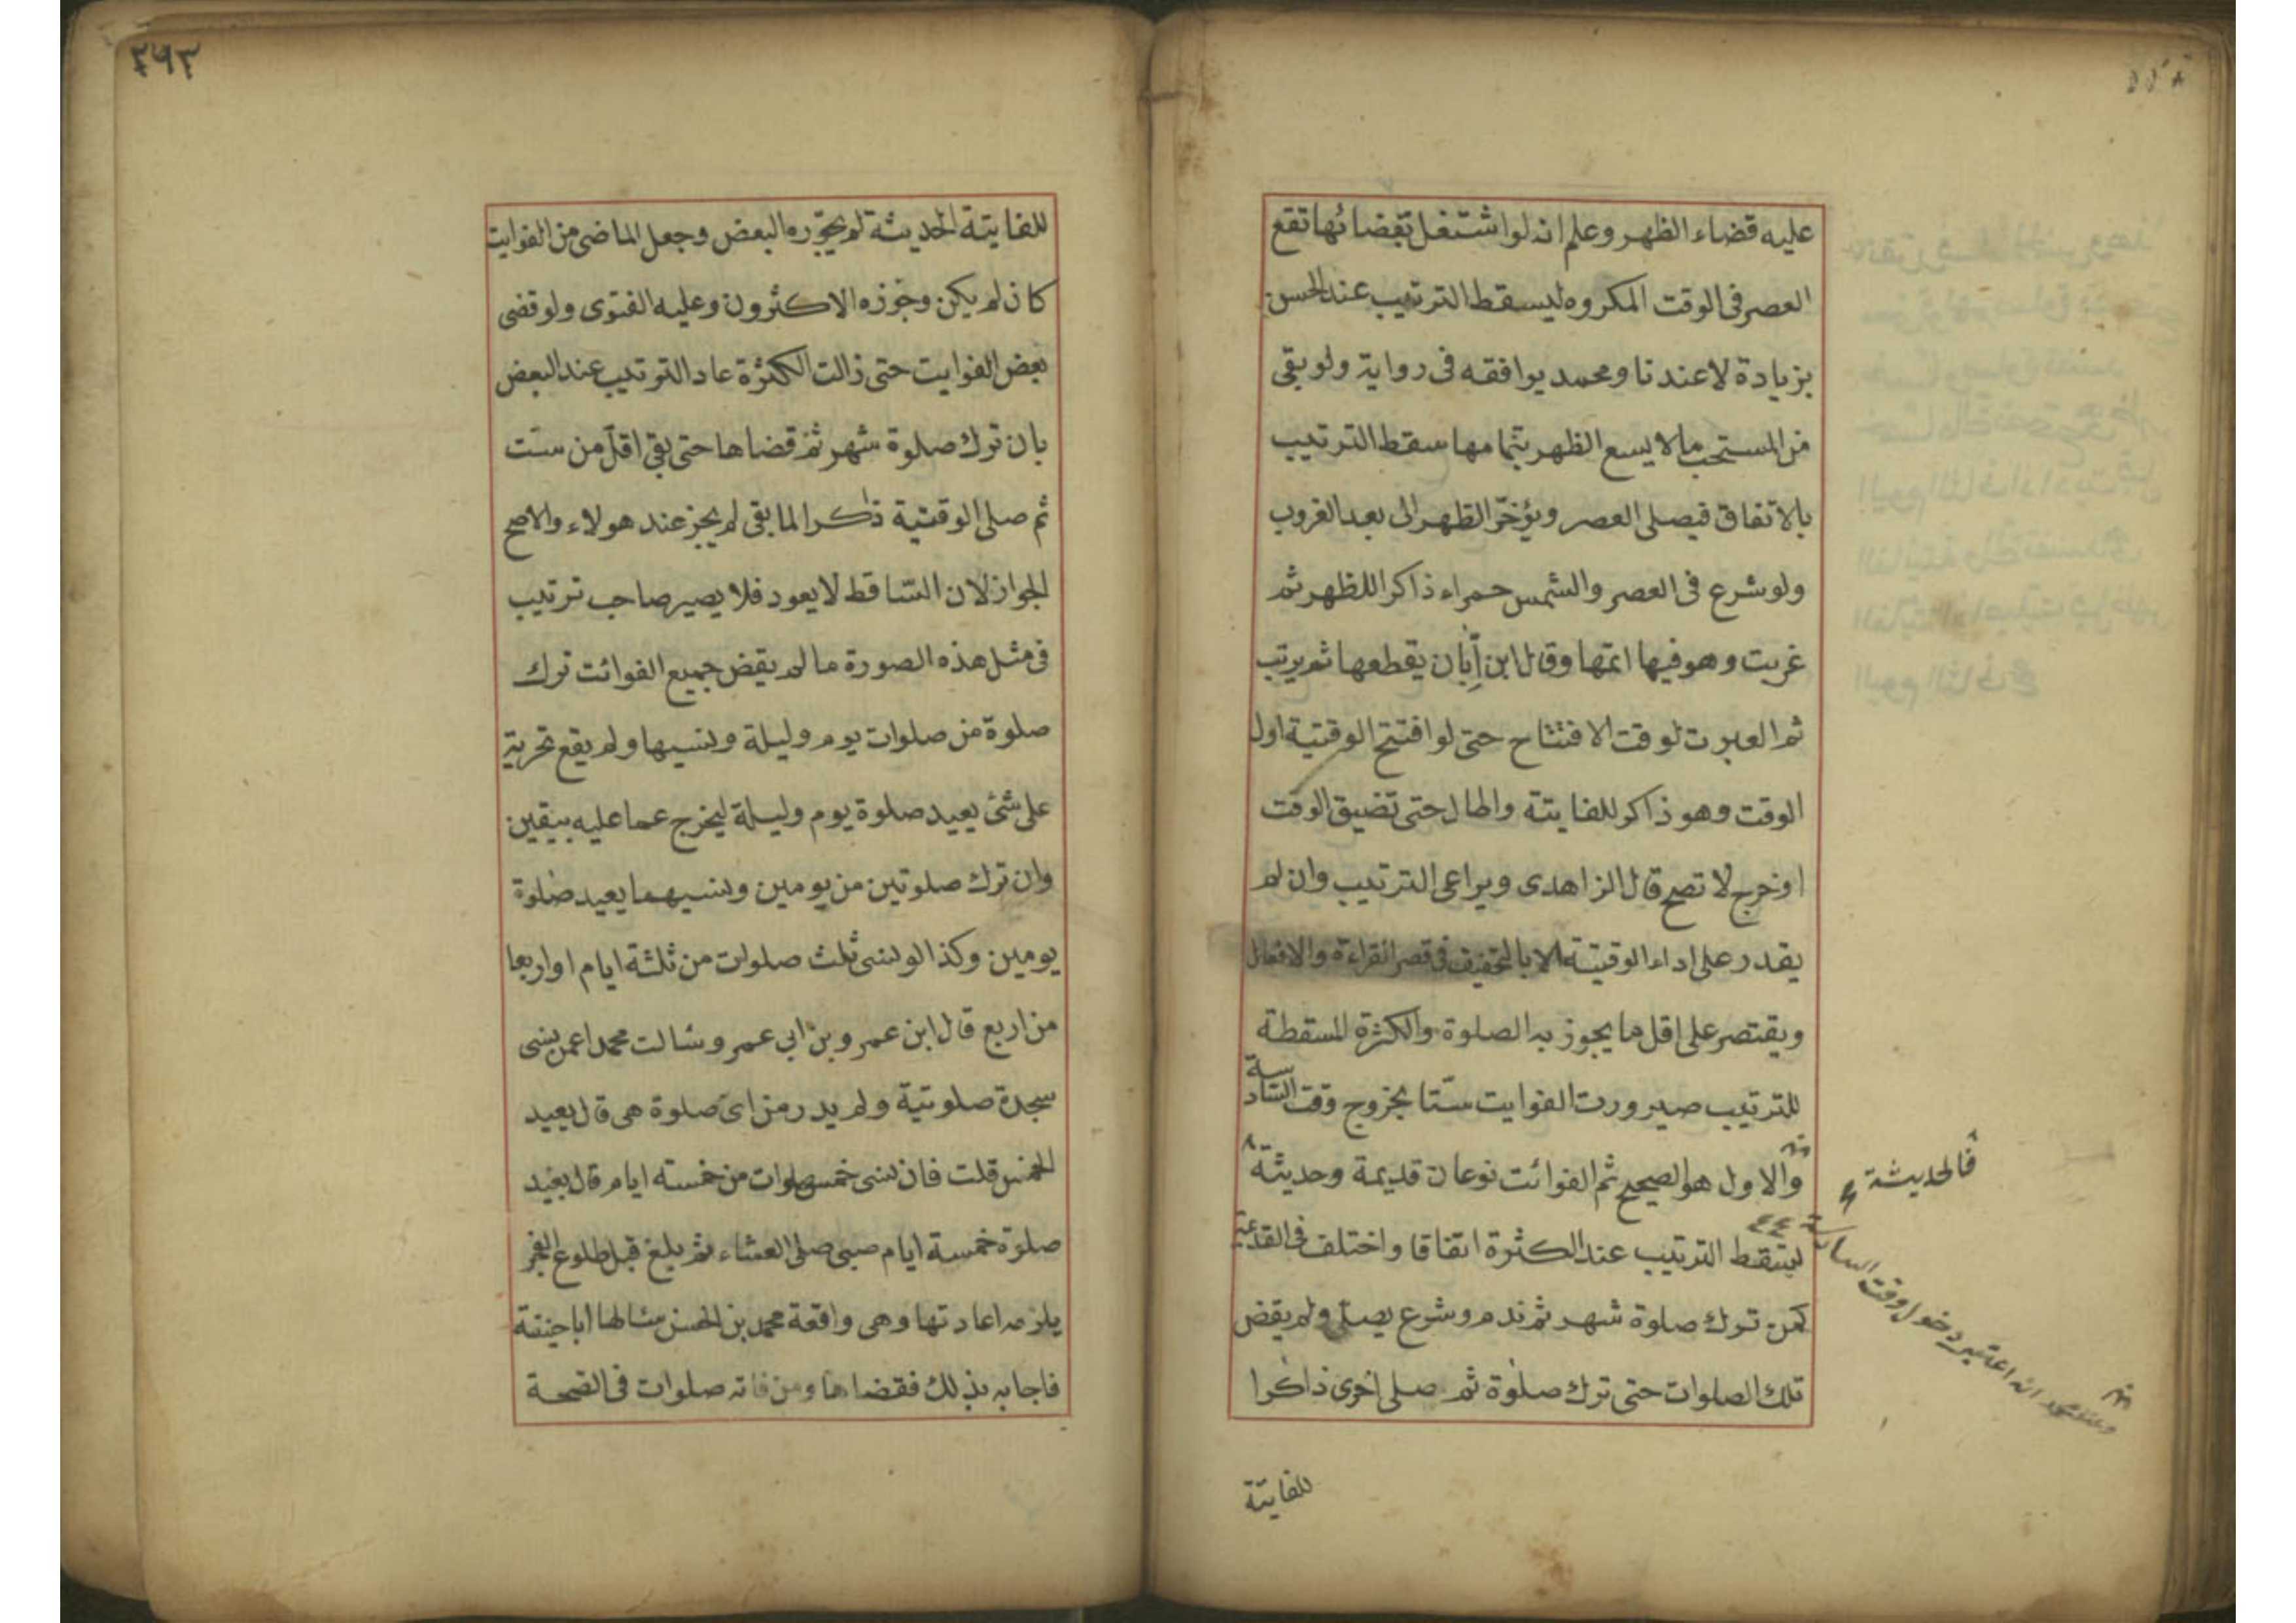 عليه قضاء الظهر وعلم انه لو اشتغل بقضائها تقع
العصر فى الوقت المكروه ليسقط الترتيب عند الحسن
بزيادة لا عندنا ومحمد يوافقه فى رواية ولو بقى
من المستحب ما لا يسع الظهر بتمامها سقط الترتيب
بالاتفاق فيصلى العصر ويؤخر الظهر الى بعد الغروب
ولو شرع فى العصر والشمس حمراء ذاكرا للظهر ثم
غربت وهو فيها اتمها وقال ابن أبان يقطعها ثم يرتب
ثم العبرت لوقت الافتتاح حتى لو افتتح الوقتية اول
الوقت وهو ذاكر للفايتة واطال حتى تضيق الوقت
او خرج لا تصح قال الزاهدى ويراعى الترتيب وان لم
يقدر على اداء الوقيتة الا بالتخفيف فى قصر القراءة والافعال
ويقتصر على اقل ما يجوز به الصلوة والكثرة المسقطة
للترتيب صيرورت الفوايت ستّا بخروج وقت السّادسة
والاول هو الصحيح ثم الفوائت نوعان قديمة وحديثة
ليسقط الترتيب عند الكثرة اتفاقا واختلف فى القديمة
كمن ترك صلوة شهر ثم ندم وشرع يصلى ولم يقض
تلك الصلوات حتى ترك صلوة ثم صلى اخرى ذاكرا
للفايتة
فالحديثة
انه اعتبر دخول وقت السابعة
٢٩٣
للفايتة الحديثة لم يجوّزه البعض وجعل الماضى من الفوايت
كان لم يكن وجوزه الاكثرون وعليه الفتوى ولو قضى
بعض الفوايت حتى زالت الكثرة عاد الترتيب عند البعض
بان ترك صلوة شهر ثم قضاها حتى بقى اقل من ست
ثم صلى الوقتية ذاكرا لما بقى لم يجز عند هولاء والاصح
الجواز لان السّاقط لا يعود فلا يصير صاحب ترتيب
فى مثل هذه الصورة ما لم يقض جميع الفوائت ترك
صلوة من صلوات يوم وليلة ونسيها ولم يقع تحريه
على شئ يعيد صلوة يوم وليلة ليخرج عما عليه بيقين
وان ترك صلوتين من يومين ونسيهما يعيد صلوة
يومين وكذا لو نسى ثلث صلوات من ثلثة ايام او اربعا
من اربع قال ابن عمر وبن ابى عمر وسالت محمدا عمن نسى
سجدة صلوتية ولم يدر من اى صلوة هى قال يعيد
الخمس قلت فان نسى خمس صلوات من خمسته ايام قال يعيد
صلوة خمسة ايام صبى صلى العشاء ثم بلغ قبل طلوع الفجر
يلزمه اعادتها وهى واقعة محمد بن الحسن سالها ابا حنيفة
فاجابه بذلك فقضاها ومن فاته صلوات فى الصحة